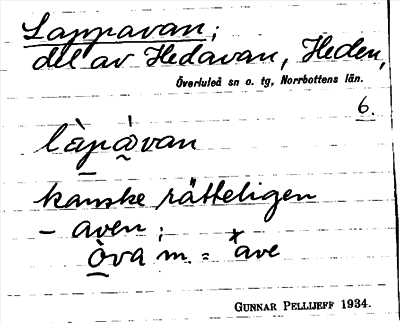 Lappavan;
del av Hedavan, Heden,
Överluleå sn o. tg, Norrbottens län.
6.
là̱pà̱van
kanske rätteligen
– aven;
ò̱va m. = *ave
GUNNAR PELLIJEFF 1934.